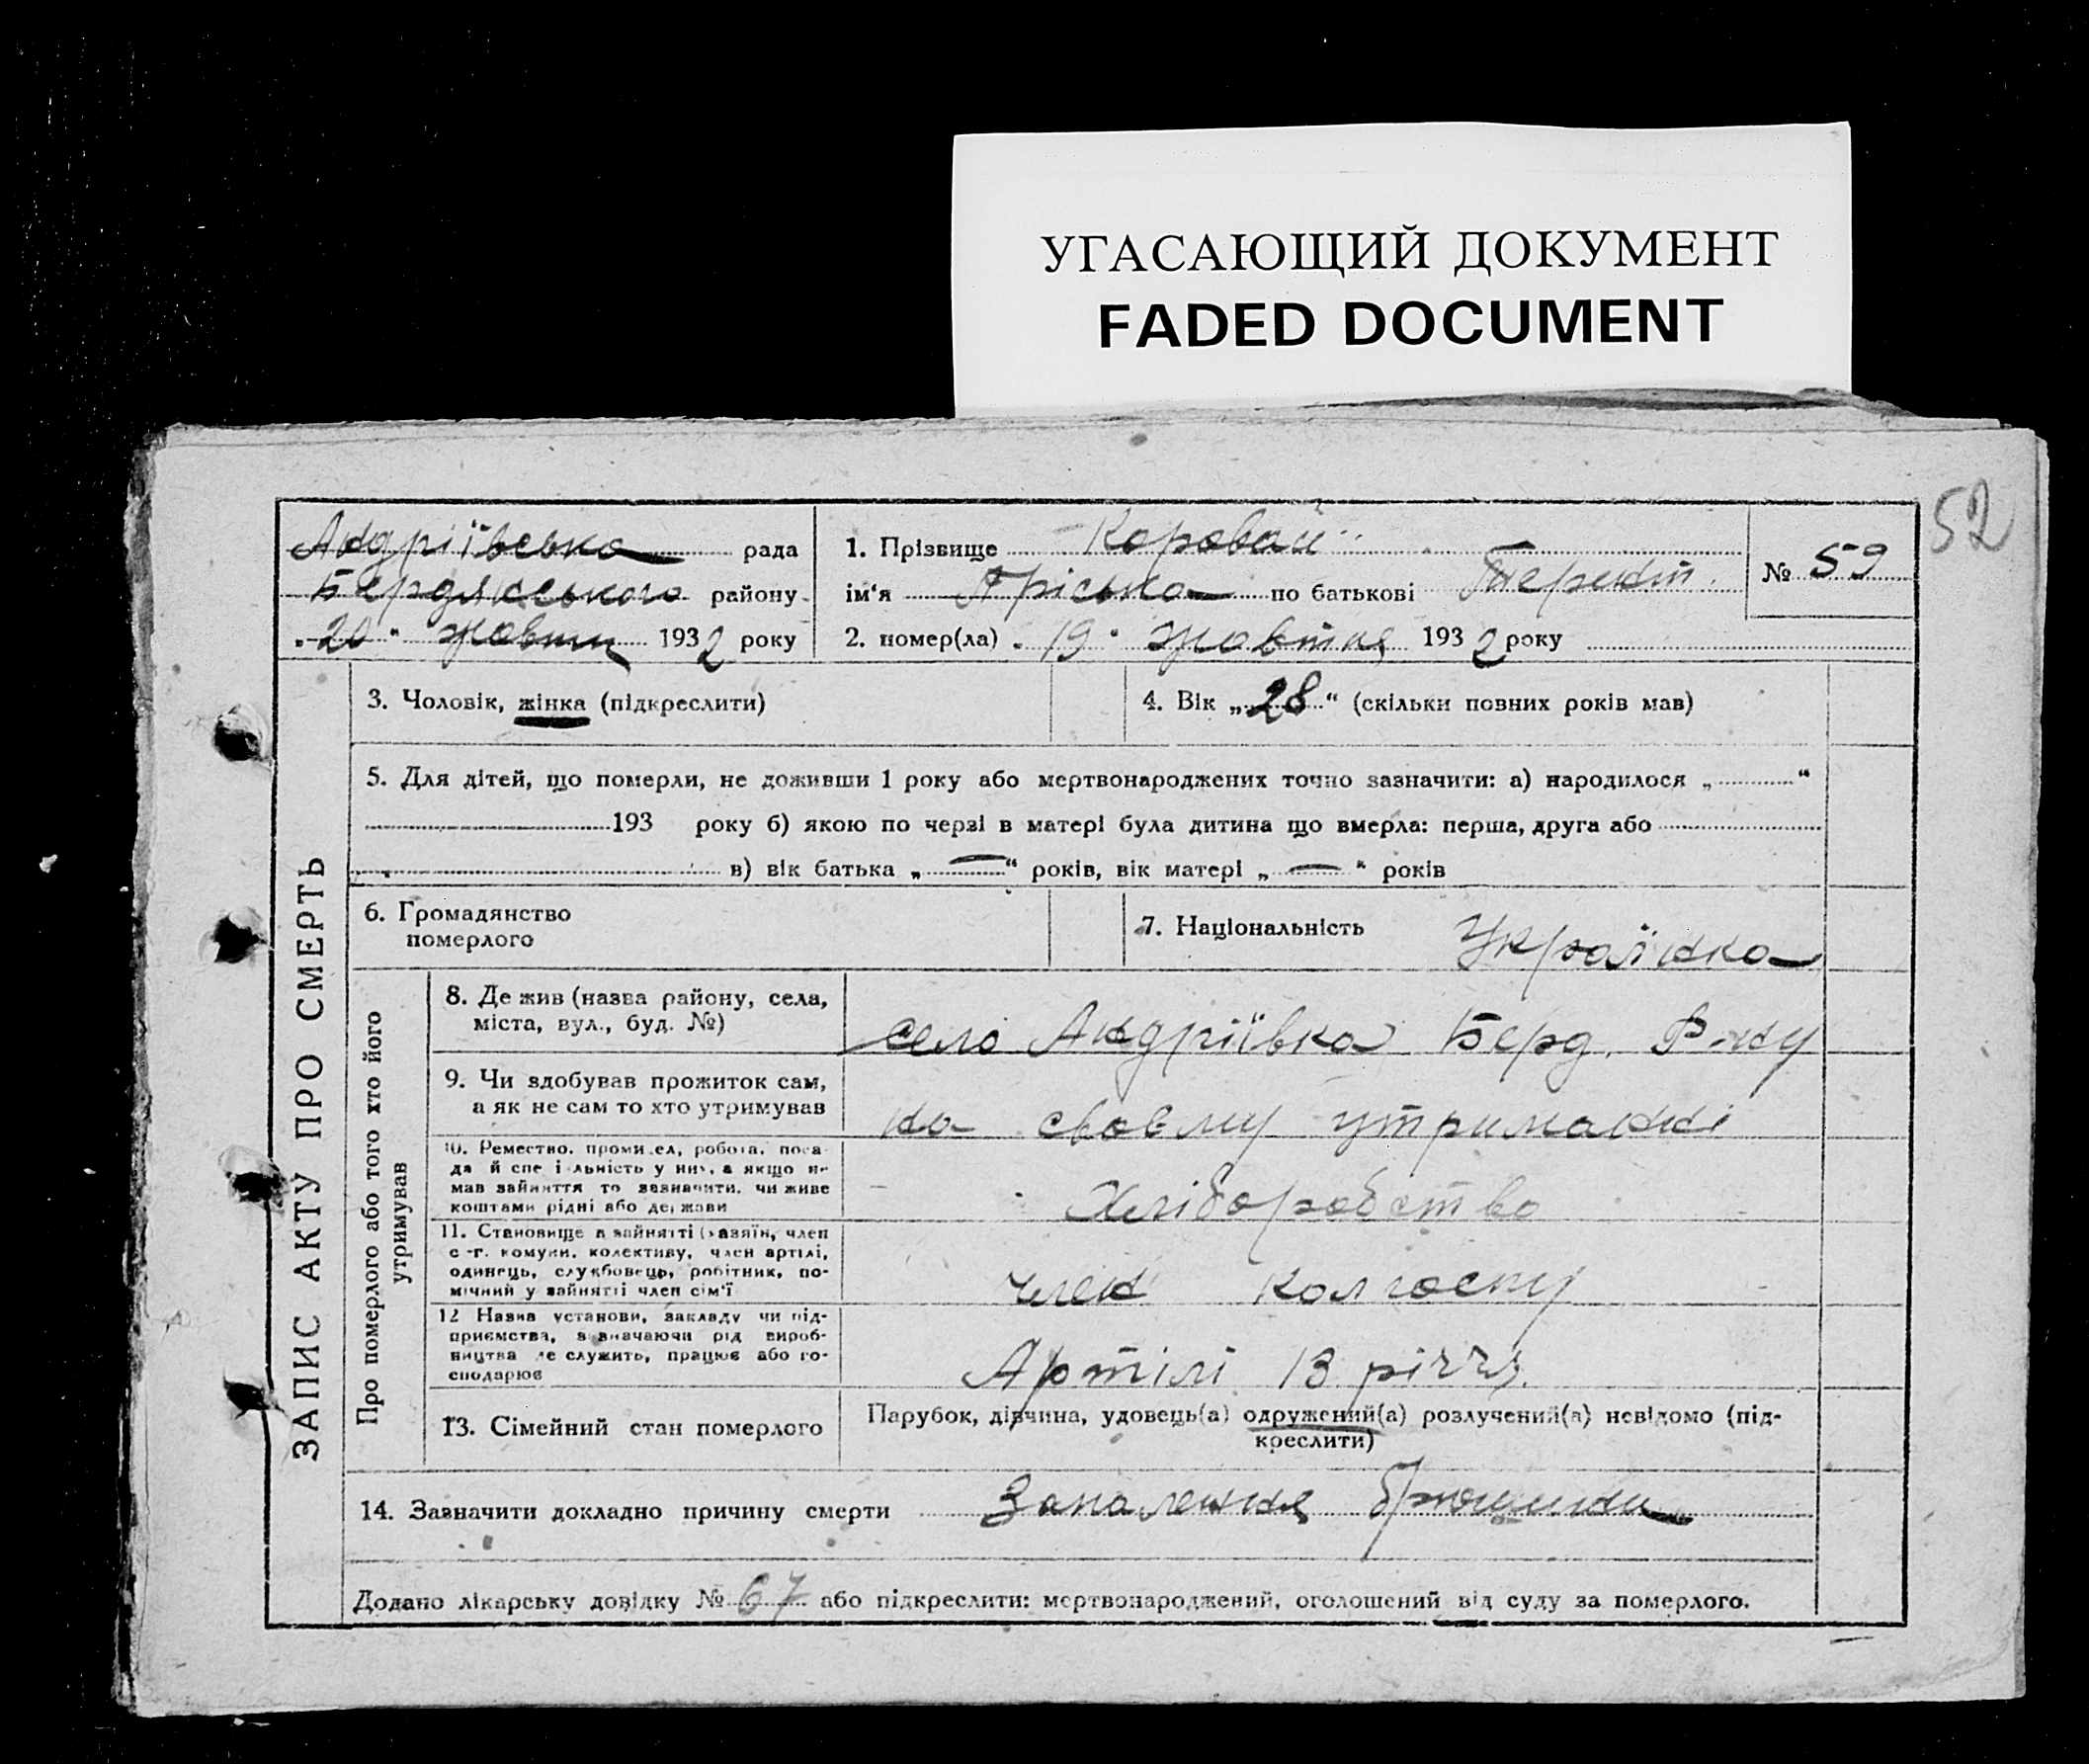 УГАСАЮЩИЙ ДОКУМЕНТ
FADED DOCUMENT
52
Андріївська рада
Бердянського району
"20" жовтня 1932 року
1. Прізвище Коровай
ім'я Пріська по батькові Терент.
№ 59
2. помер(ла) "19" жовтня 1932 року
ЗАПИС АКТУ ПРО СМЕРТЬ
3. Чоловік, жінка (підкреслити)
4. Вік „28“ (скільки повних років мав)
5. Для дітей, що померли, не доживши 1 року або мертвонароджених точно зазначити: а) народилося „ “
193 року б) якою по черзі в матері була дитина що вмерла: перша, друга або
в) вік батька „—“ років, вік матері „—“ років
6. Громадянство
померлого
7. Національність Українка
Про померлого або того хто його
утримував
8. Де жив (назва району, села,
міста, вул., буд. №)
село Андріївка Берд. Р-ну
9. Чи здобував прожиток сам,
а як не сам то хто утримував
на своєму утриманні
10. Ремество, промисел, робота, поса-
да й спеціальність у них, а якщо не
мав зайняття то зазначити, чи живе
коштами рідні або держави
Хліборобство
11. Становище в зайнятті (хазяїн, член
с.-г. комуни, колективу, член артілі,
одинець, службовець, робітник, по-
мічний у зайнятті член сім'ї
член колгоспу
12 Назва установи, закладу чи під-
приємства, зазначаючи рід вироб-
ництва де служить, працює або го-
сподарює
Артілі 13 річчя.
13. Сімейний стан померлого
Парубок, дівчина, удовець(а) одружений(а) розлучений(а) невідомо (під-
креслити)
14. Зазначити докладно причину смерти Запалення брюшини
Додано лікарську довідку № 67 або підкреслити: мертвонароджений, оголошений від суду за померлого.